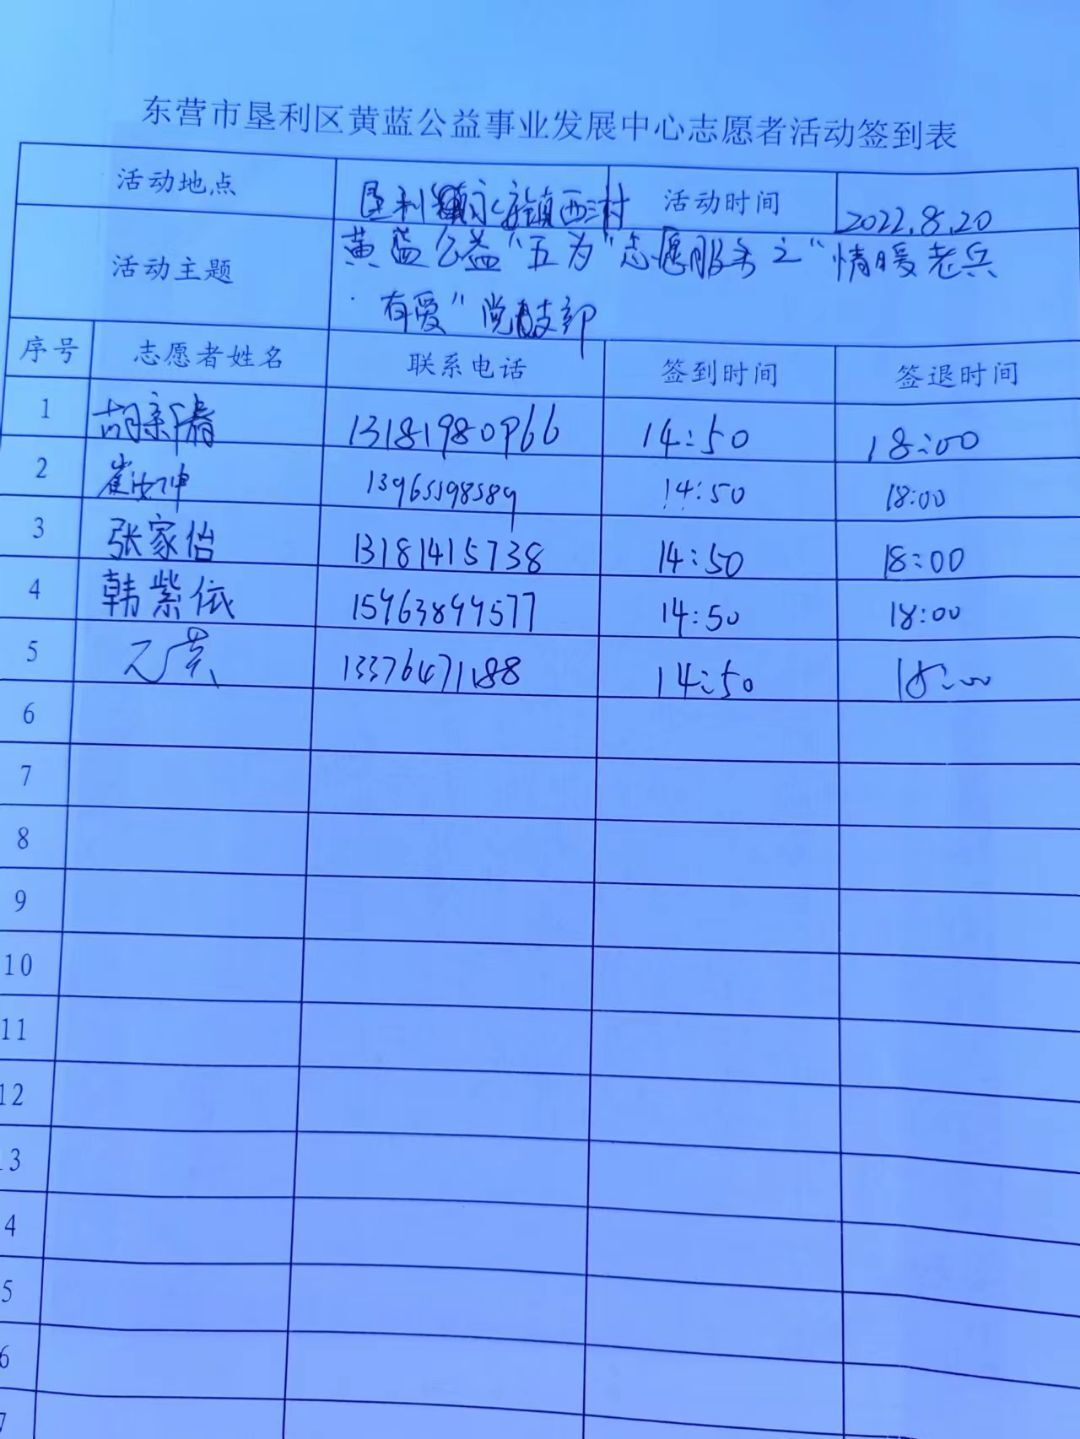 东营市垦利区黄蓝公益事业发展中心志愿者活动签到表
活动地点 垦利 永安镇西三村 活动时间 2022.8.20
活动主题 黄蓝公益"五为"志愿服务之"情暖老兵
·有爱"党支部
序号 志愿者姓名 联系电话 签到时间 签退时间
1 胡新 13181980966 14:50 18:00
2 崔 坤 13965598589 14:50 18:00
3 张家怡 13181415738 14:50 18:00
4 韩紫依 15963899577 14:50 18:00
5 13376471188 14:50 18:00
6
7
8
9
10
11
12
3
4
5
6
7